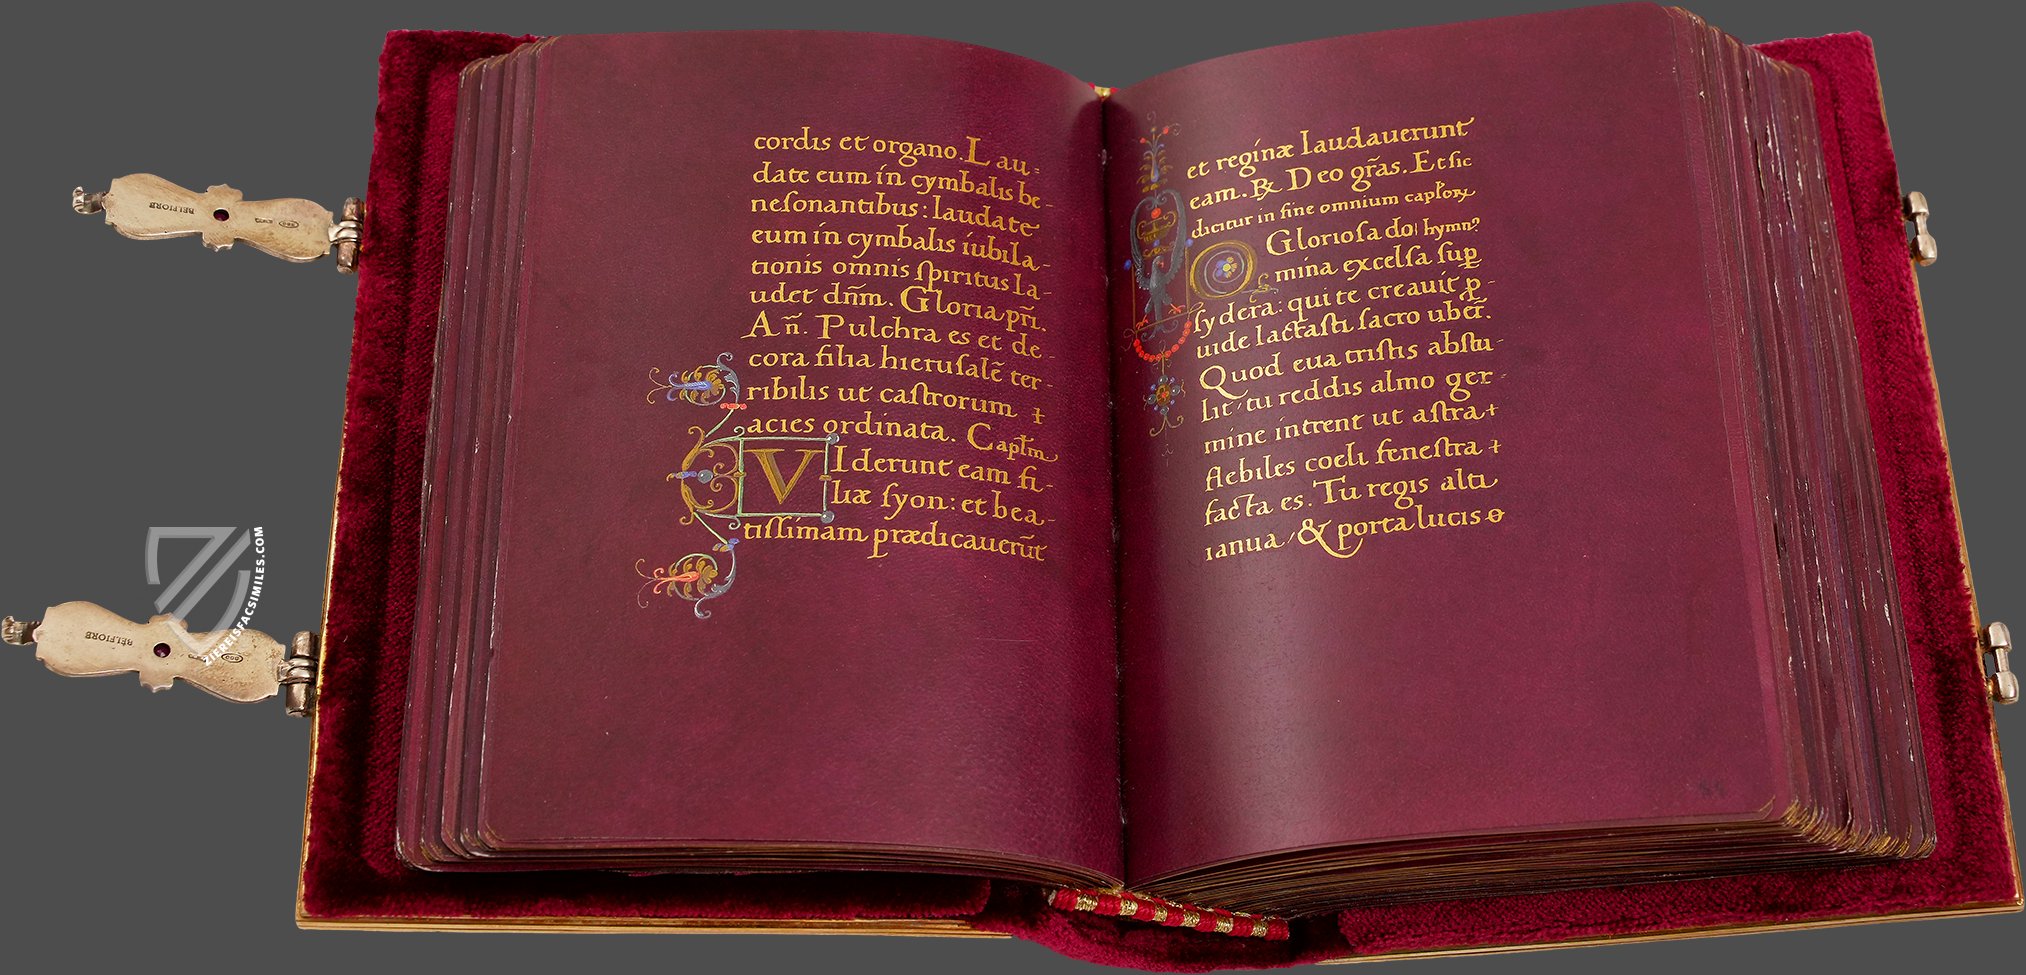 cordis et organo. Lau-
date eum in cymbalis be-
nesonantibus: laudate
eum in cymbalis iubila-
tionis omnis spiritus la-
udet dñm. Gloria pr̃i.
Añ. Pulchra es et de-
cora filia hierusalẽ ter-
ribilis ut castrorum +
acies ordinata. Capłm
VIderunt eam fi-
liæ syon: et bea-
tissimam prædicauerũt
et reginæ laudauerunt
eam. ℟ Deo gr̃as. Et sic
dicitur in fine omnium capłoꝝ
O Gloriosa do| hymnꝰ
mina excelsa sup̱
sydera: qui te creauit p̱-
uide lactasti sacro uber̃.
Quod eua tristis abstu-
lit: tu reddis almo ger-
mine intrent ut astra+
flebiles coeli fenestra +
facta es. Tu regis alti
ianua / & porta lucis
BELFIORE
BELFIORE
ZIEREISFACSIMILES.COM